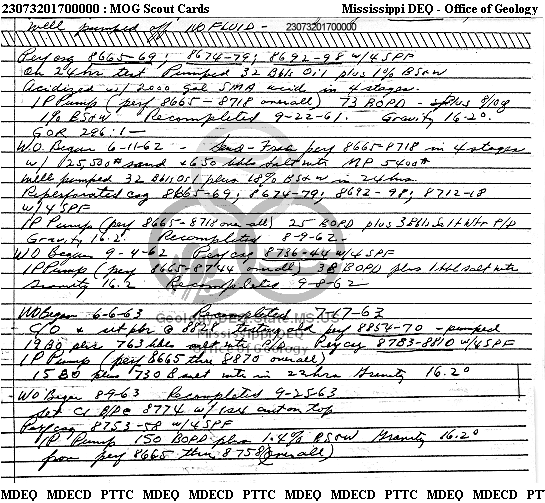 23073201700000 : MOG Scout Cards Mississippi DEQ - Office of Geology
well pumped off NO FLUID - 23073201700000
Perf csg 8665-69; 8674-79; 8692-98 w/4 SPF
On 24 hr test Pumped 32 Bbls Oil plus 1% BS&W
Acidized w/ 2000 gal SMA acid in 4 stages.
IP Pump (perf 8665-8718 overall) 73 BOPD - plus 9/10 of
1% BS&W Recompleted 9-22-61. Gravity 16.2°.
GOR 296:1 -
W.O. Began 6-11-62 - Sand-Frac perf 8665-8718 in 4 stages
w/ 25,500# sand & 650 bbls salt wtr MP 5400#
Well pumped 32 Bbl oil plus 18% BS&W in 24 hrs
Reperforated csg 8665-69; 8674-79; 8692-98; 8712-18
w/4 SPF
IP Pump (perf 8665-8718 overall) 25 BOPD plus 3 Bbls Salt Wtr P/D
Gravity 16.2 Recompleted 8-9-62
WO began 9-4-62 Perf csg 8736-44 w/4 SPF
IP Pump (perf 8665-8744 overall) 38 BOPD plus 1 bbl salt wtr
Gravity 16.2 Recompleted 9-8-62
WO Began 6-6-63 Recompleted 7-17-63
C/O & set pkr @ 8828, testing old perf 8854-70 - pumped
19 BO plus 763 bbls salt wtr P/D Perf csg 8783-8810 w/4 SPF
IP Pump (perf 8665 thru 8810 overall)
15 BO plus 730 B salt wtr in 22 hrs Gravity 16.2°
WO Began 8-9-63 Recompleted 9-25-63
set CI BP @ 8774 w/ 1 sx cmt on top
Perf csg 8753-58 w/4 SPF
IP Pump 150 BOPD plus 1.4% BS&W Gravity 16.2°
from perf 8665 thru 8758 (overall)
MDEQ MDECD PTTC MDEQ MDECD PTTC MDEQ MDECD PTTC MDEQ MDECD PT